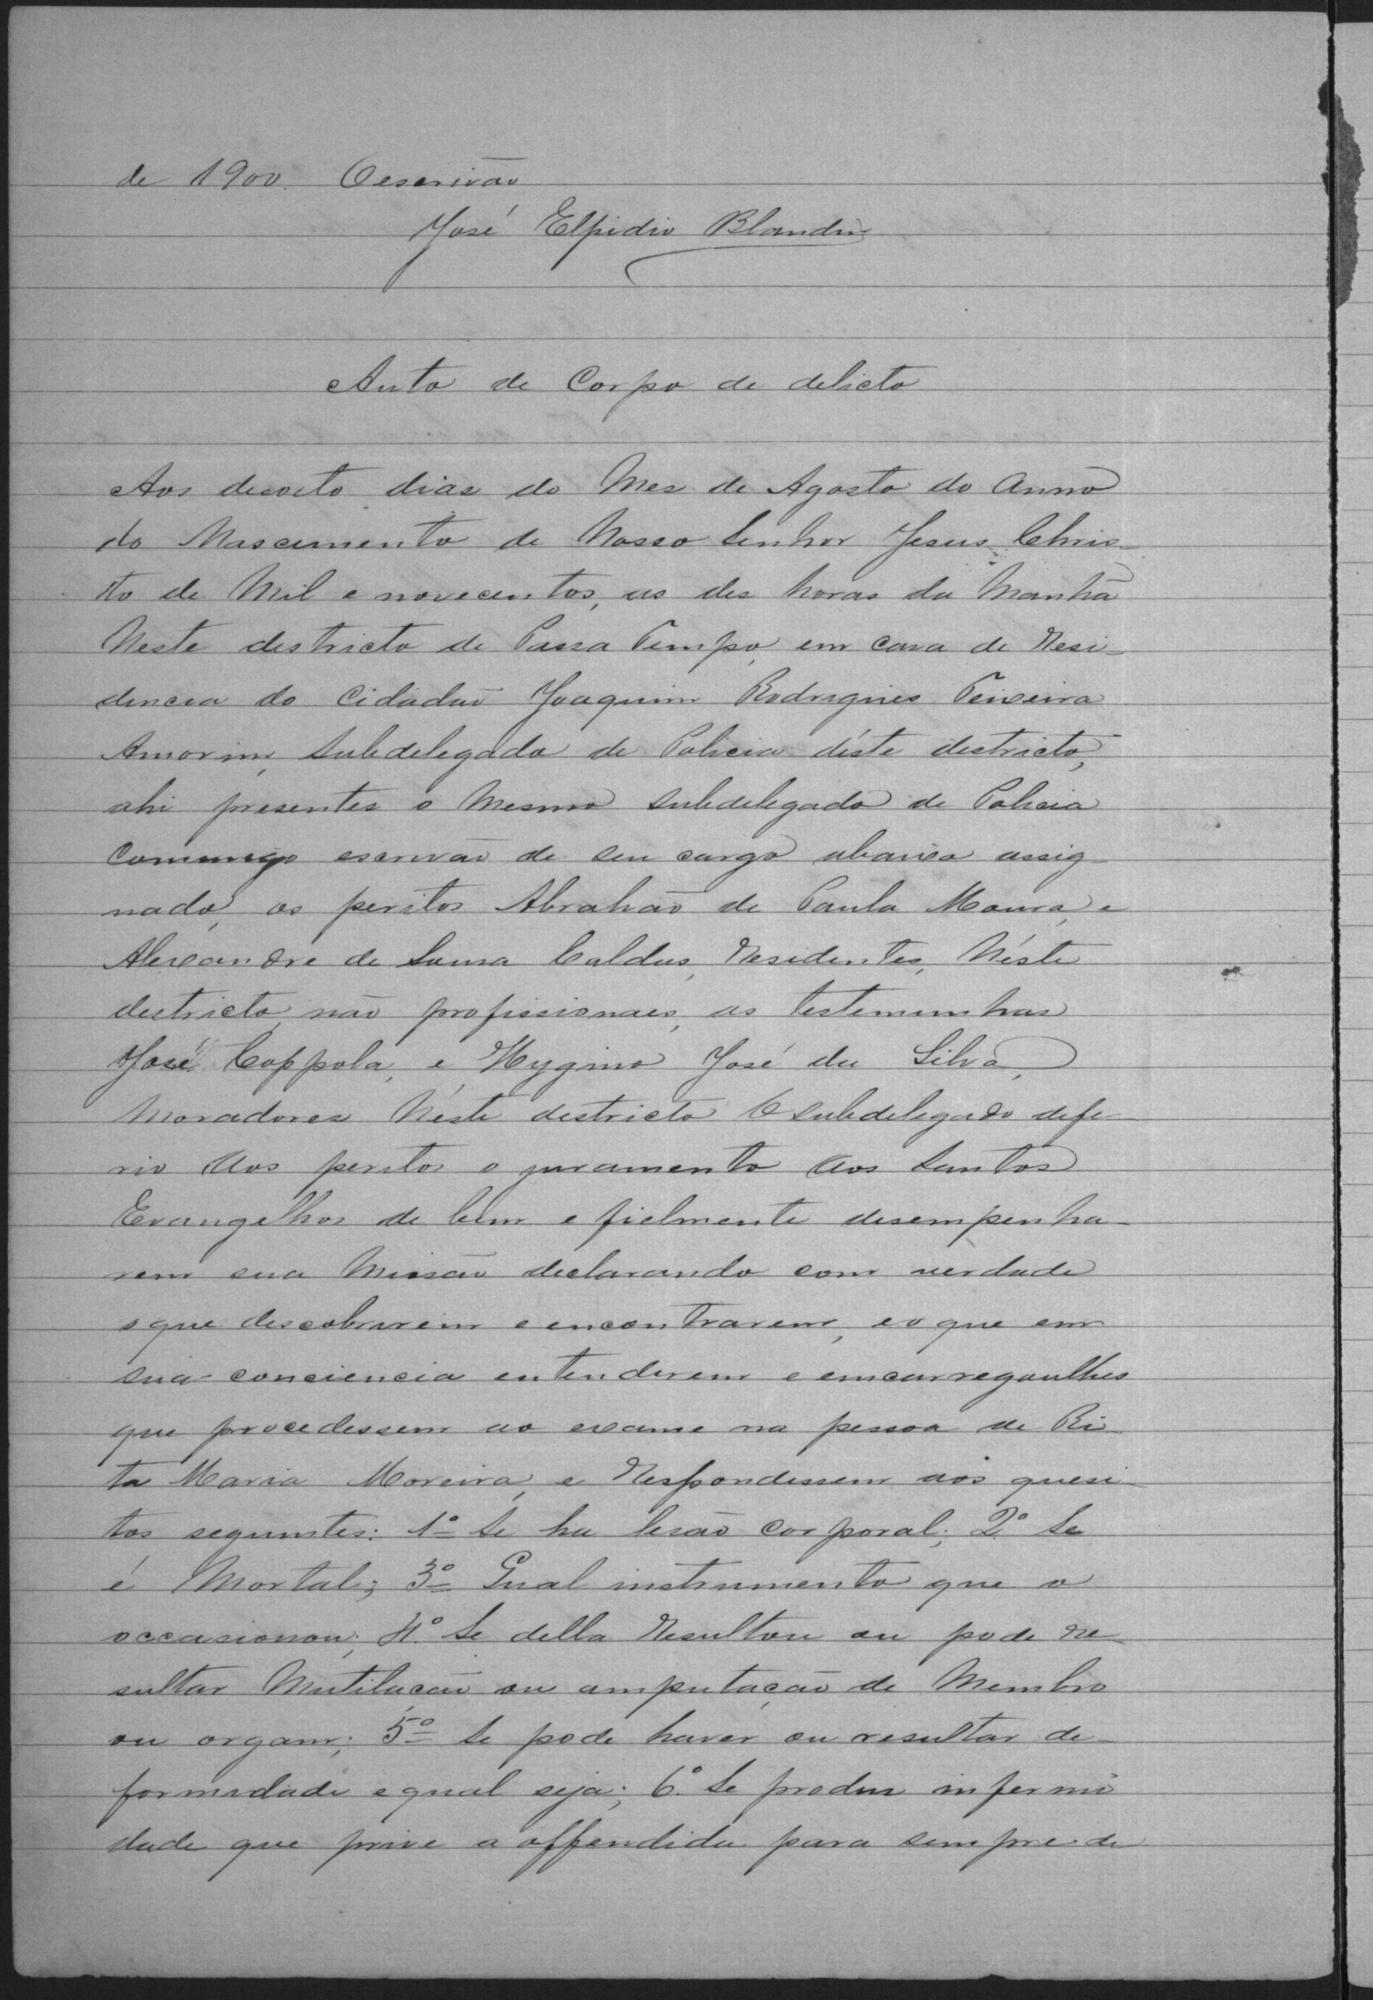 de 1900. Oescrivão
José Elpidio Blandi
Auto de Corpo de delicto
Aos desoito dias do Mes de Agosto do Anno
do Nascimento de Nosso Senhor Jesus Chris-
to de Mil e novecentos, as des horas da Manhã
Neste districto de Passa Tempo, em casa de Resi-
dencia do Cidadão Joaquim Rodrigues Teixeira
Amorim, Subdelegado de Policia déste destricto,
ahi presentes o Mesmo Subdelegado de Policia
Commigo escrivão de seu cargo abaixo assig-
nado, os peritos Abrahão de Paula Moura, e
Alexandre de Sousa Caldas, Residentes, Néste
destricto, não profissionaes, as testemunhas
José Coppola, e Hygino José da Silva,
Moradores Néste destricto O subdelegado defe-
rio aos peritos o juramento aos Santos
Evangelhos de bem e fielmente desempenha-
rem sua Missão declarando com verdade
o que descobrirem e encontrarem, e o que em
sua conciencia entenderem e emcarregoulhes
que procedessem ao exame na pessoa de Ri-
ta Maria Moreira, e Respondessem aos quesi-
tos seguintes: 1º Se ha lesão corporal; 2º Se
é Mortal; 3º Qual instrumento que a
occasionou; 4º Se della Resultou ou pode Re-
sultar Mutilacão ou amputação de Membro
ou orgam; 5º Se pode haver ou resultar de-
formidade e qual seja; 6º Se produz infermi
dade que prive a offendida para sempre de